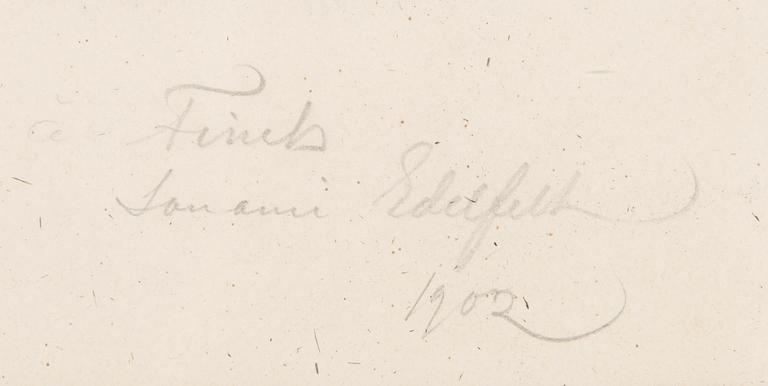 à Finch
son ami Edelfelt
1902